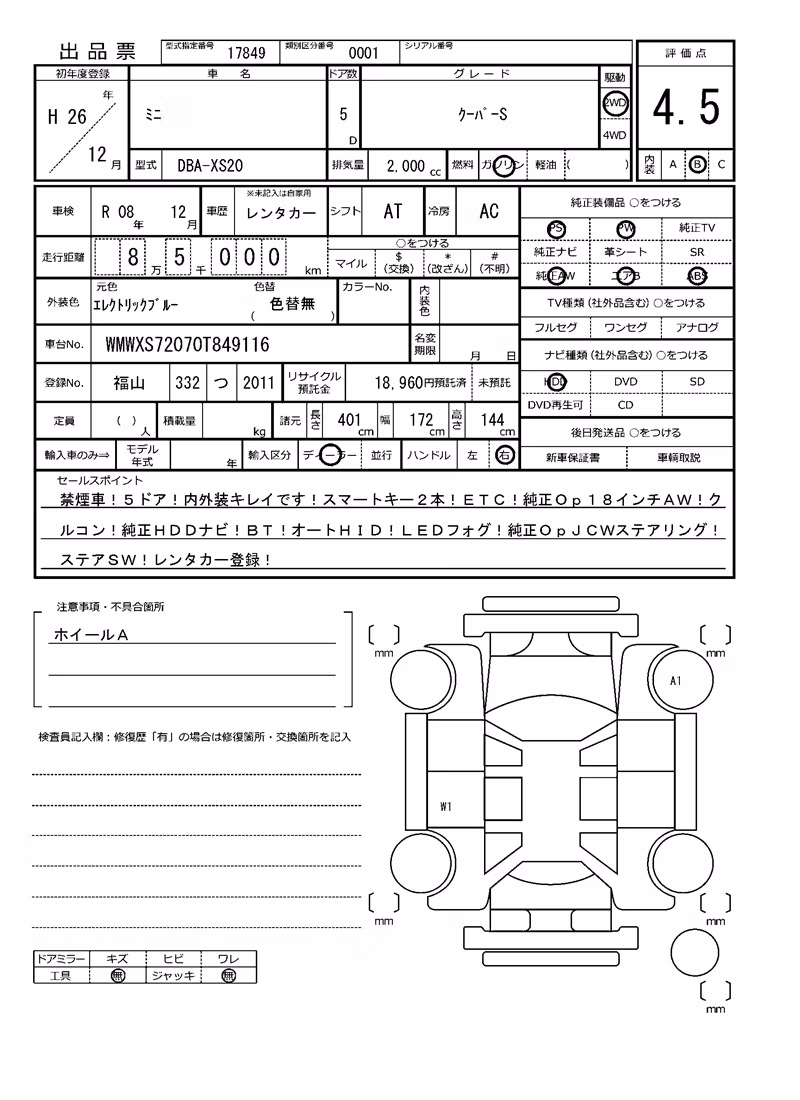 出品票 型式指定番号 17849 類別区分番号 0001 シリアル番号
評価点
4.5
内装 A B C
初年度登録 車名 ドア数 グレード 駆動
H 26 年 12 月 ミニ 5 D クーパーS 2WD
4WD
型式 DBA-XS20 排気量 2,000 cc 燃料 ガソリン 軽油 ( )
車検 R 08 年 12 月 車歴 ※未記入は自家用 レンタカー シフト AT 冷房 AC
走行距離 8 万 5 千 0 0 0 km ○をつける
マイル $ (交換) * (改ざん) # (不明)
外装色 元色 エレクトリックブルー 色替 色替無 ( ) カラーNo. 内装色
車台No. WMWXS72070T849116 名変期限 月 日
登録No. 福山 332 つ 2011 リサイクル預託金 18,960円預託済 未預託
定員 ( ) 人 積載量 kg 諸元 長さ 401 cm 幅 172 cm 高さ 144 cm
輸入車のみ⇒ モデル年式 年 輸入区分 ディーラー 並行 ハンドル 左 右
純正装備品 ○をつける
PS PW 純正TV
純正ナビ 革シート SR
純正AW エアB ABS
TV種類 (社外品含む) ○をつける
フルセグ ワンセグ アナログ
ナビ種類 (社外品含む) ○をつける
HDD DVD SD
DVD再生可 CD
後日発送品 ○をつける
新車保証書 車輌取説
セールスポイント
禁煙車!5ドア!内外装キレイです!スマートキー2本!ETC!純正Op18インチAW!ク
ルコン!純正HDDナビ!BT!オートHID!LEDフォグ!純正OpJCWステアリング!
ステアSW!レンタカー登録!
注意事項・不具合箇所
ホイールA
検査員記入欄:修復歴「有」の場合は修復箇所・交換箇所を記入
ドアミラー キズ ヒビ ワレ
工具 無 ジャッキ 無
mm
mm
A1
W1
mm
mm
mm